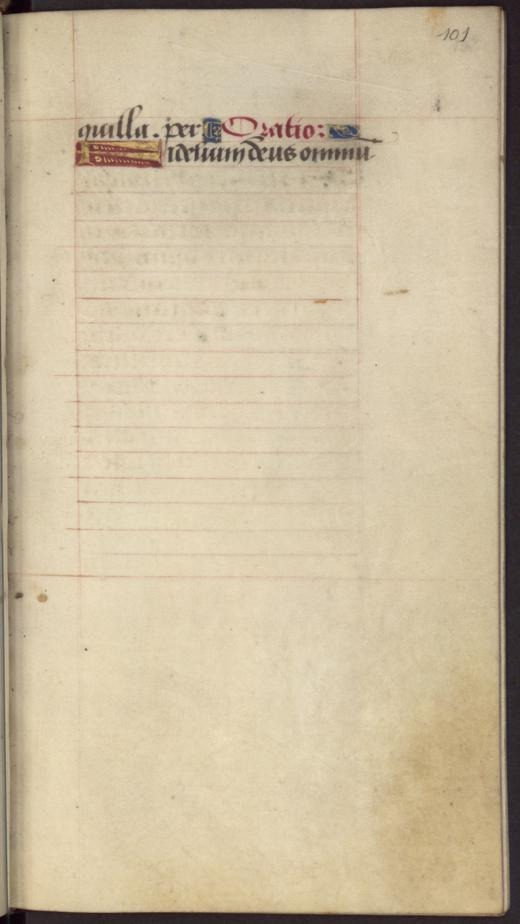 101
quilla. per Oratio:
Fidelium deus omniu